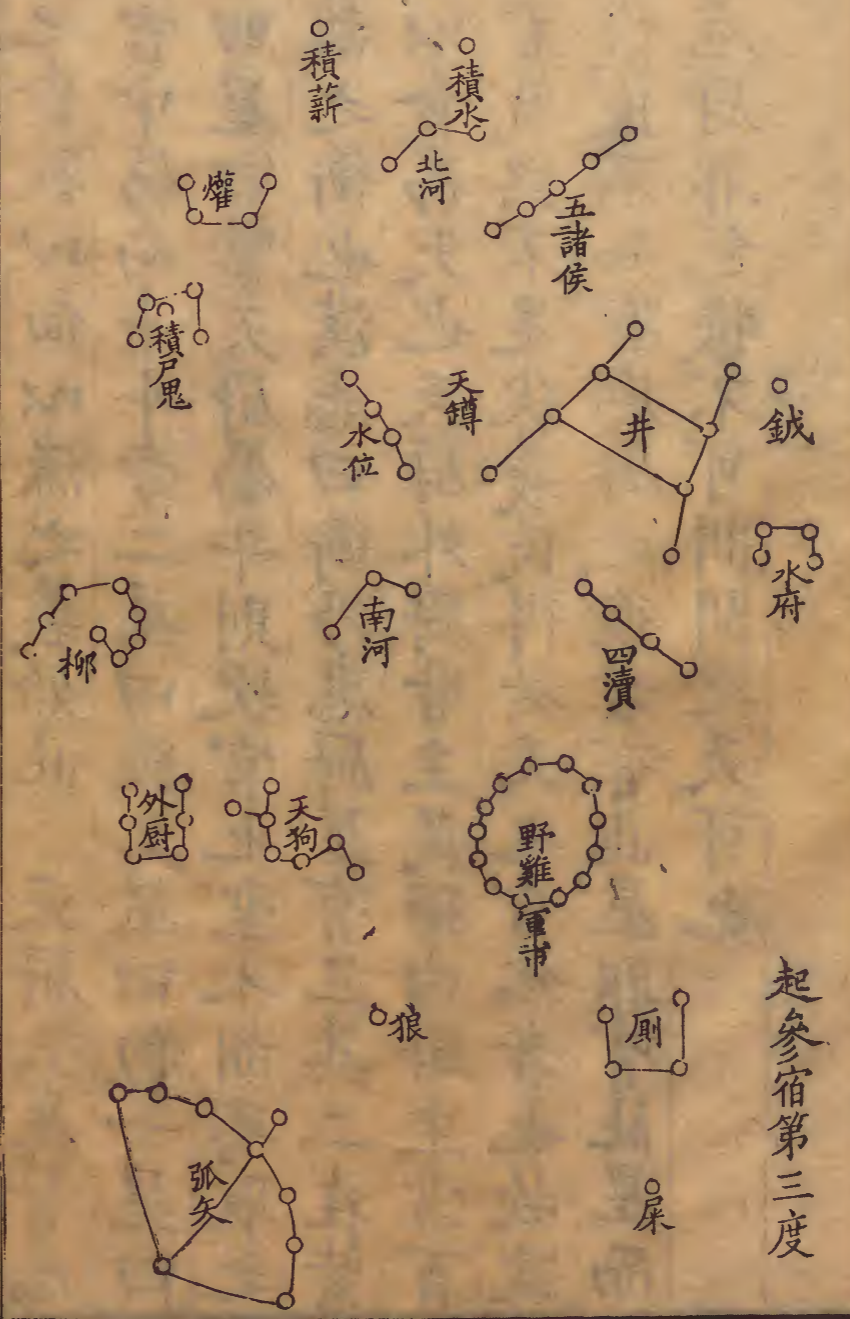 起參宿第三度
鉞
水府
井
五諸侯
四瀆
厠
屎
積水
北河
天罇
野雞
軍市
積薪
水位
南河
天狗
狼
爟
積尸鬼
柳
外厨
弧矢